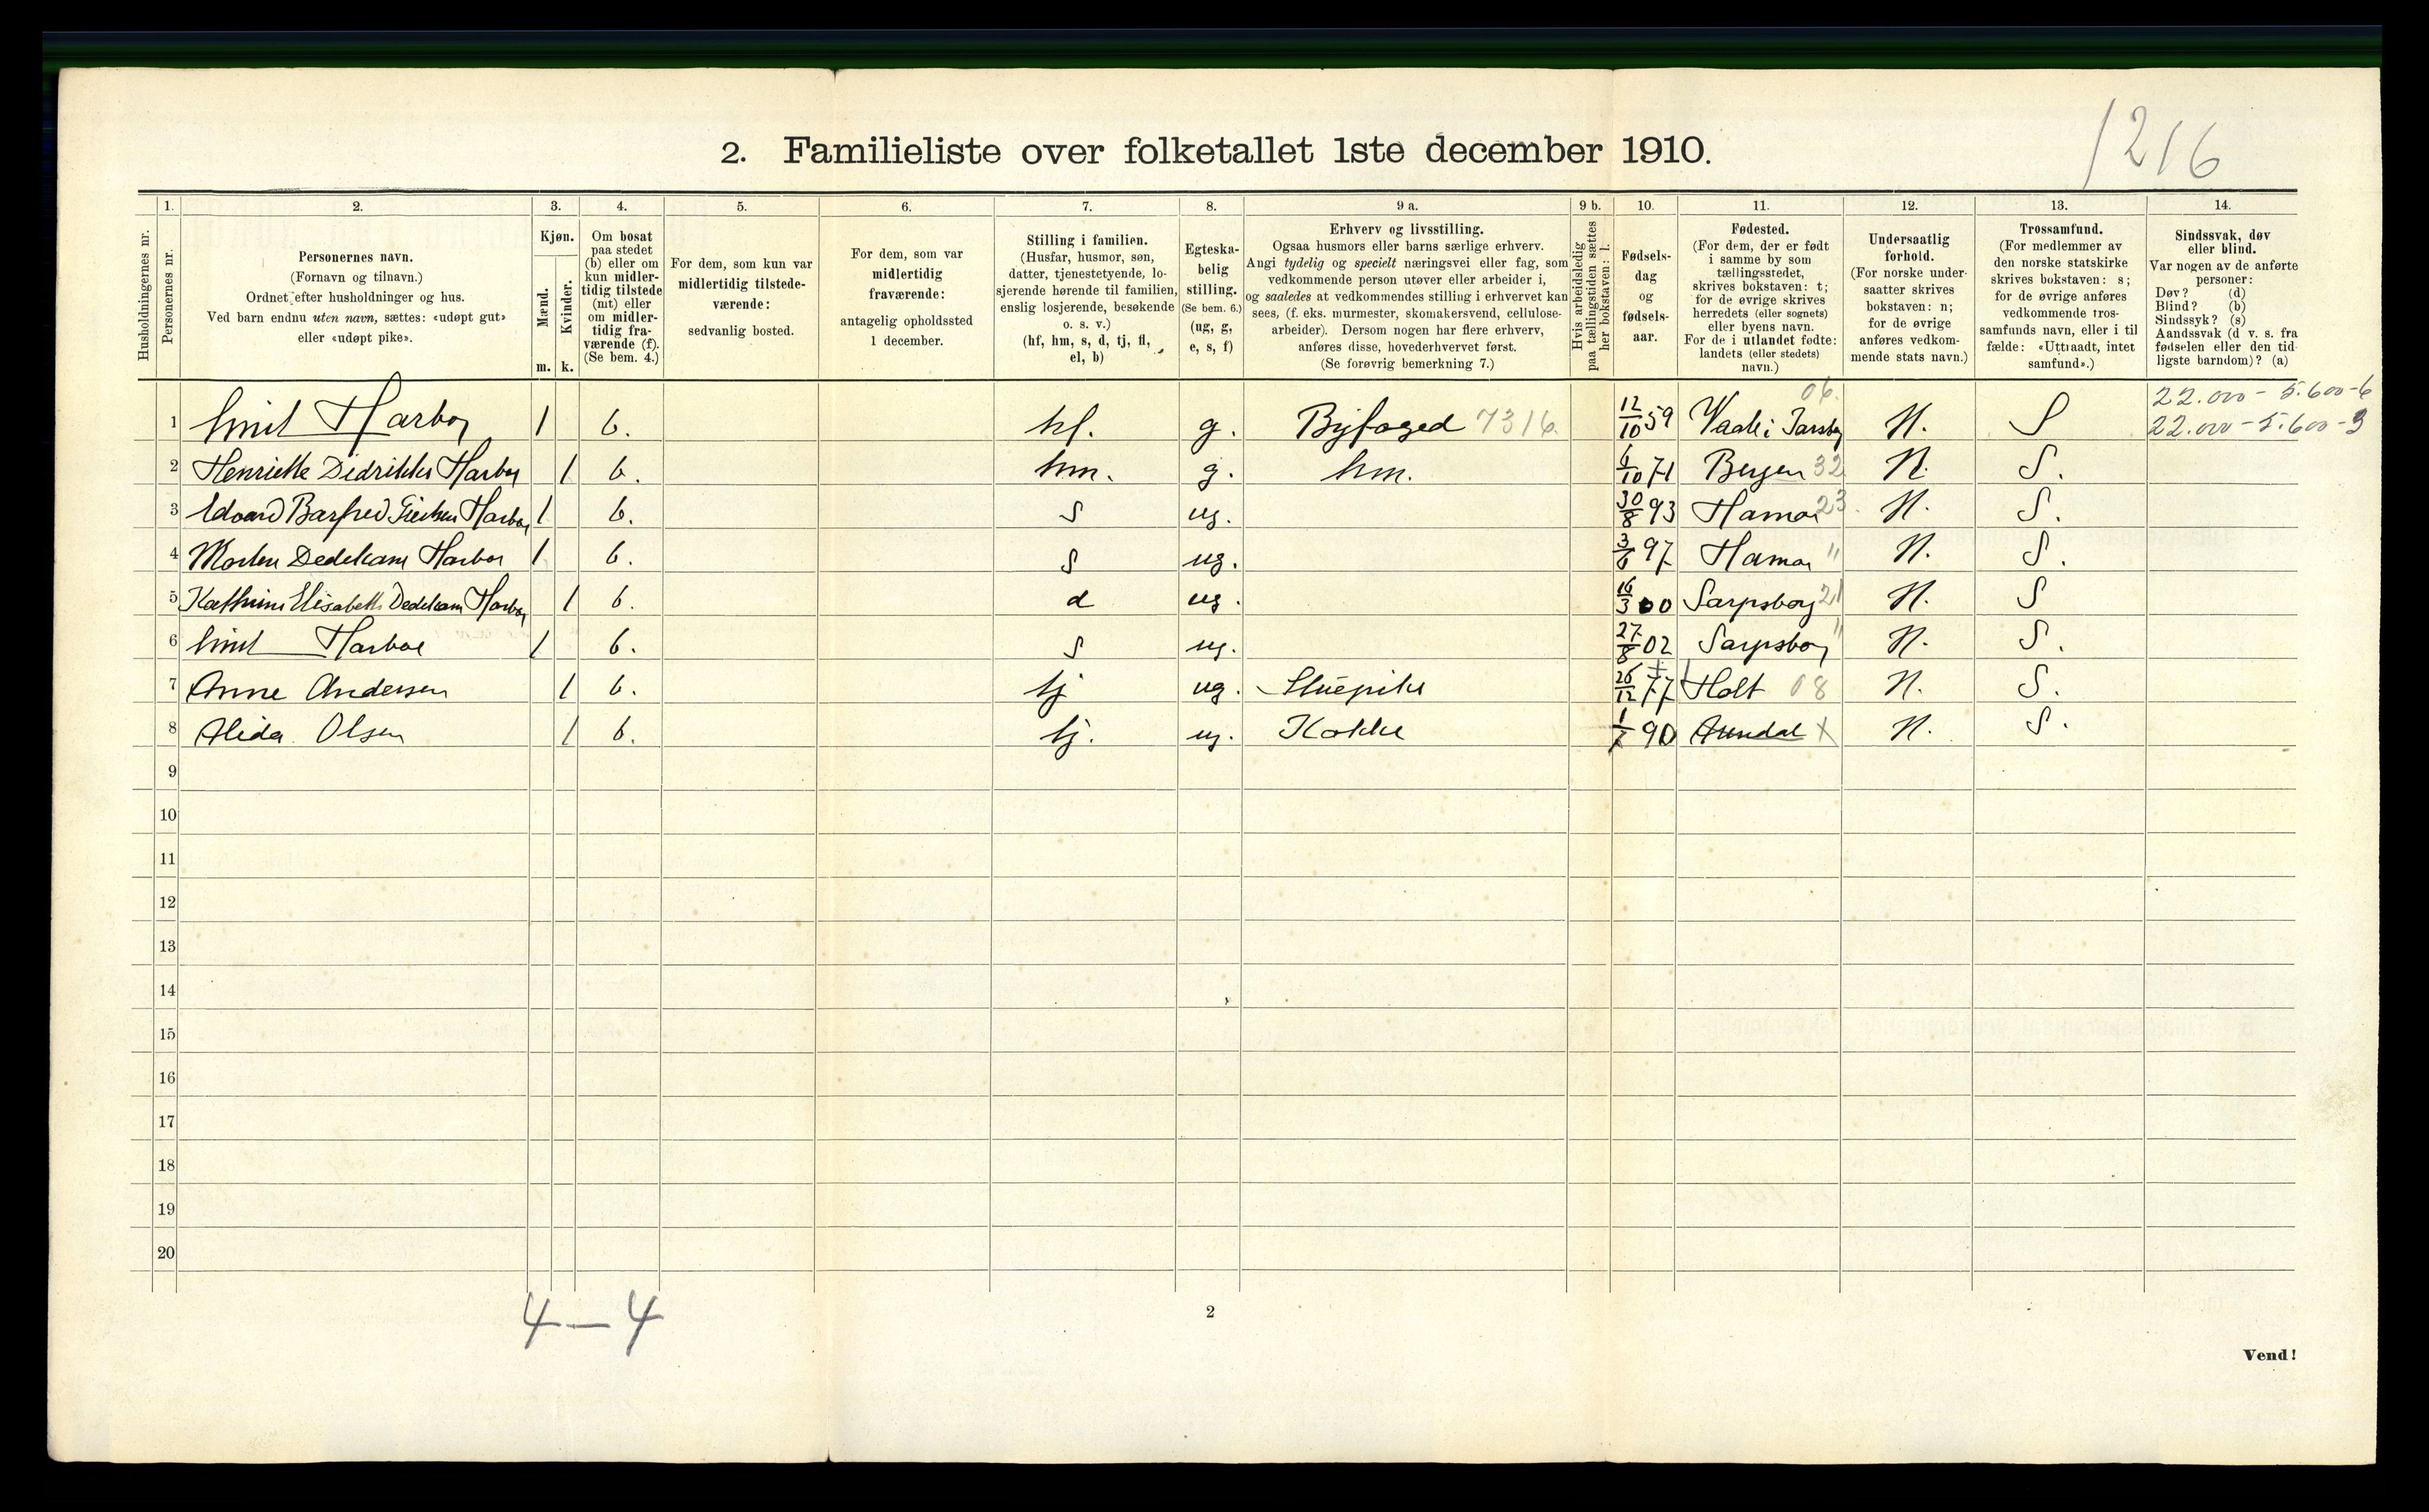 1216
2. Familieliste over folketallet 1ste december 1910.
1. 2. 3. 4. 5. 6. 7. 8. 9 a. 9 b. 10. 11. 12. 13. 14.
Husholdningernes nr.
Personernes nr.
Personernes navn.
(Fornavn og tilnavn.)
Ordnet efter husholdninger og hus.
Ved barn endnu uten navn, sættes: «udøpt gut»
eller «udøpt pike».
Kjøn.
Mænd.
Kvinder.
m. k.
Om bosat
paa stedet
(b) eller om
kun midler-
tidig tilstede
(mt) eller
om midler-
tidig fra-
værende (f).
(Se bem. 4.)
For dem, som kun var
midlertidig tilstede-
værende:
sedvanlig bosted.
For dem, som var
midlertidig
fraværende:
antagelig opholdssted
1 december.
Stilling i familien.
(Husfar, husmor, søn,
datter, tjenestetyende, lo-
sjerende hørende til familien,
enslig losjerende, besøkende
o. s. v.)
(hf, hm, s, d, tj, fl,
el, b)
Egteska-
belig
stilling.
(Se bem. 6.)
(ug, g,
e, s, f)
Erhverv og livsstilling.
Ogsaa husmors eller barns særlige erhverv.
Angi tydelig og specielt næringsvei eller fag, som
vedkommende person utøver eller arbeider i,
og saaledes at vedkommendes stilling i erhvervet kan
sees, (f. eks. murmester, skomakersvend, cellulose-
arbeider). Dersom nogen har flere erhverv,
anføres disse, hovederhvervet først.
(Se forøvrig bemerkning 7.)
Hvis arbeidsledig
paa tællingstiden sættes
her bokstaven: l.
Fødsels-
dag
og
fødsels-
aar.
Fødested.
(For dem, der er født
i samme by som
tællingsstedet,
skrives bokstaven: t;
for de øvrige skrives
herredets (eller sognets)
eller byens navn.
For de i utlandet fødte:
landets (eller stedets)
navn.)
Undersaatlig
forhold.
(For norske under-
saatter skrives
bokstaven: n;
for de øvrige
anføres vedkom-
mende stats navn.)
Trossamfund.
(For medlemmer av
den norske statskirke
skrives bokstaven: s;
for de øvrige anføres
vedkommende tros-
samfunds navn, eller i til
fælde: «Uttraadt, intet
samfund».)
Sindssvak, døv
eller blind.
Var nogen av de anførte
personer:
Døv? (d)
Blind? (b)
Sindssyk? (s)
Aandssvak (d v. s. fra
fødselen eller den tid-
ligste barndom)? (a)
06. 22.000 - 5.600-6
1 Emil Harboe 1 b. hf. g. Byfoged 7316. 12/10 59 Vaale i Jarsberg N. S 22.000 - 5.600 - 3
2 Henriette Dedrikke Harboe 1 b. hm. g. hm. 6/10 71 Bergen 32 N. S.
3 Edvard Barfred Harboe 1 b. s ug. 30/8 93 Hamar 23. N. S.
4 Morten Dedekam Harboe 1 b. s ug. 3/6 97 Hamar " N. S.
5 Kathrine Elisabeth Dedekam Harboe 1 b. d ug. 16/3 00 Sarpsborg 21 N. S
6 Emil Harboe 1 b. s ug. 27/8 02 Sarpsborg " N. S.
7 Anne Andersen 1 b. tj ug. Stuepike 26/12 77 Holt 08 N. S.
8 Alida Olsen 1 b. tj. ug. Kokke 1/7 90 Arendal x N. S.
9
10
11
12
13
14
15
16
17
18
19
20
4 — 4
2
Vend!